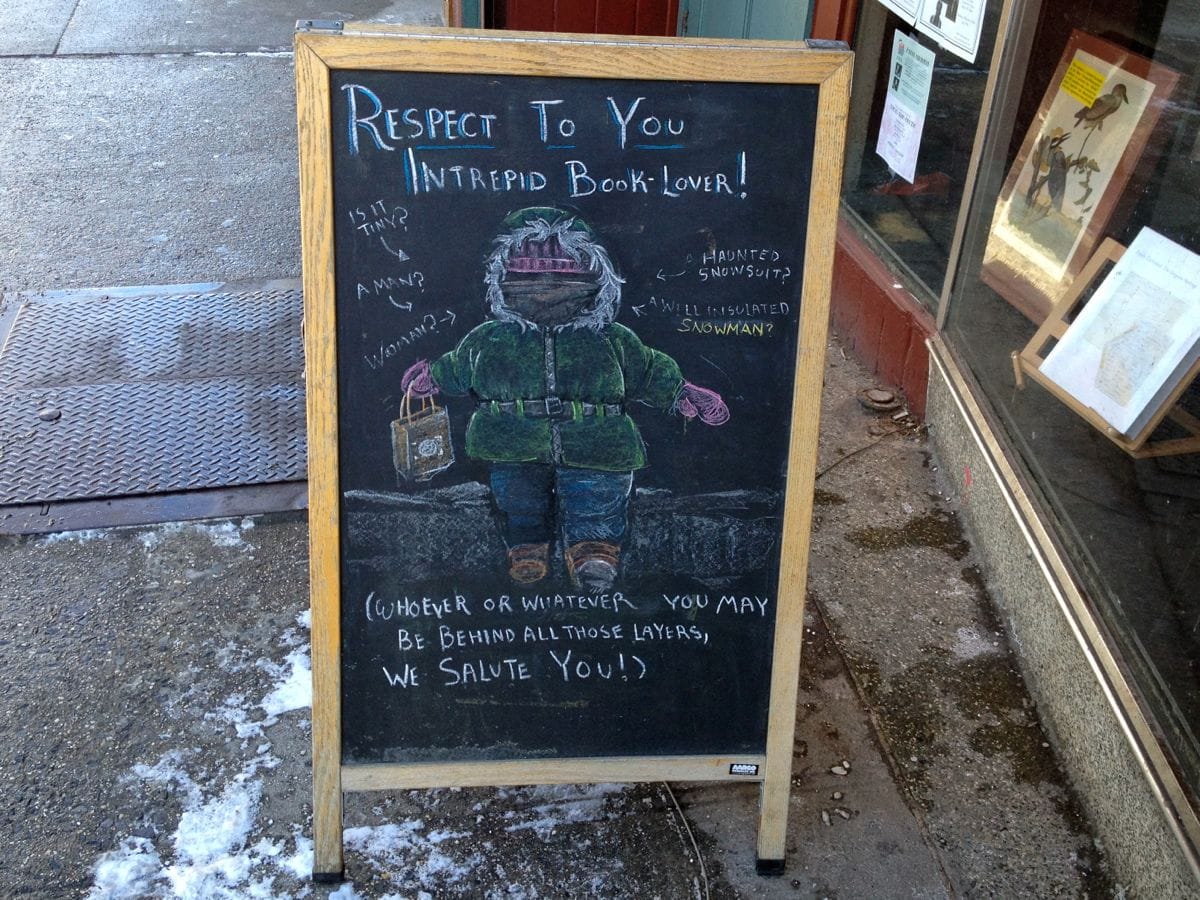 RESPECT TO YOU
INTREPID BOOK-LOVER!
IS IT
TINY?
A MAN?
WOMAN?
A HAUNTED
SNOWSUIT?
A WELL INSULATED
SNOWMAN?
(WHOEVER OR WHATEVER YOU MAY
BE BEHIND ALL THOSE LAYERS,
WE SALUTE YOU!)
AARCO